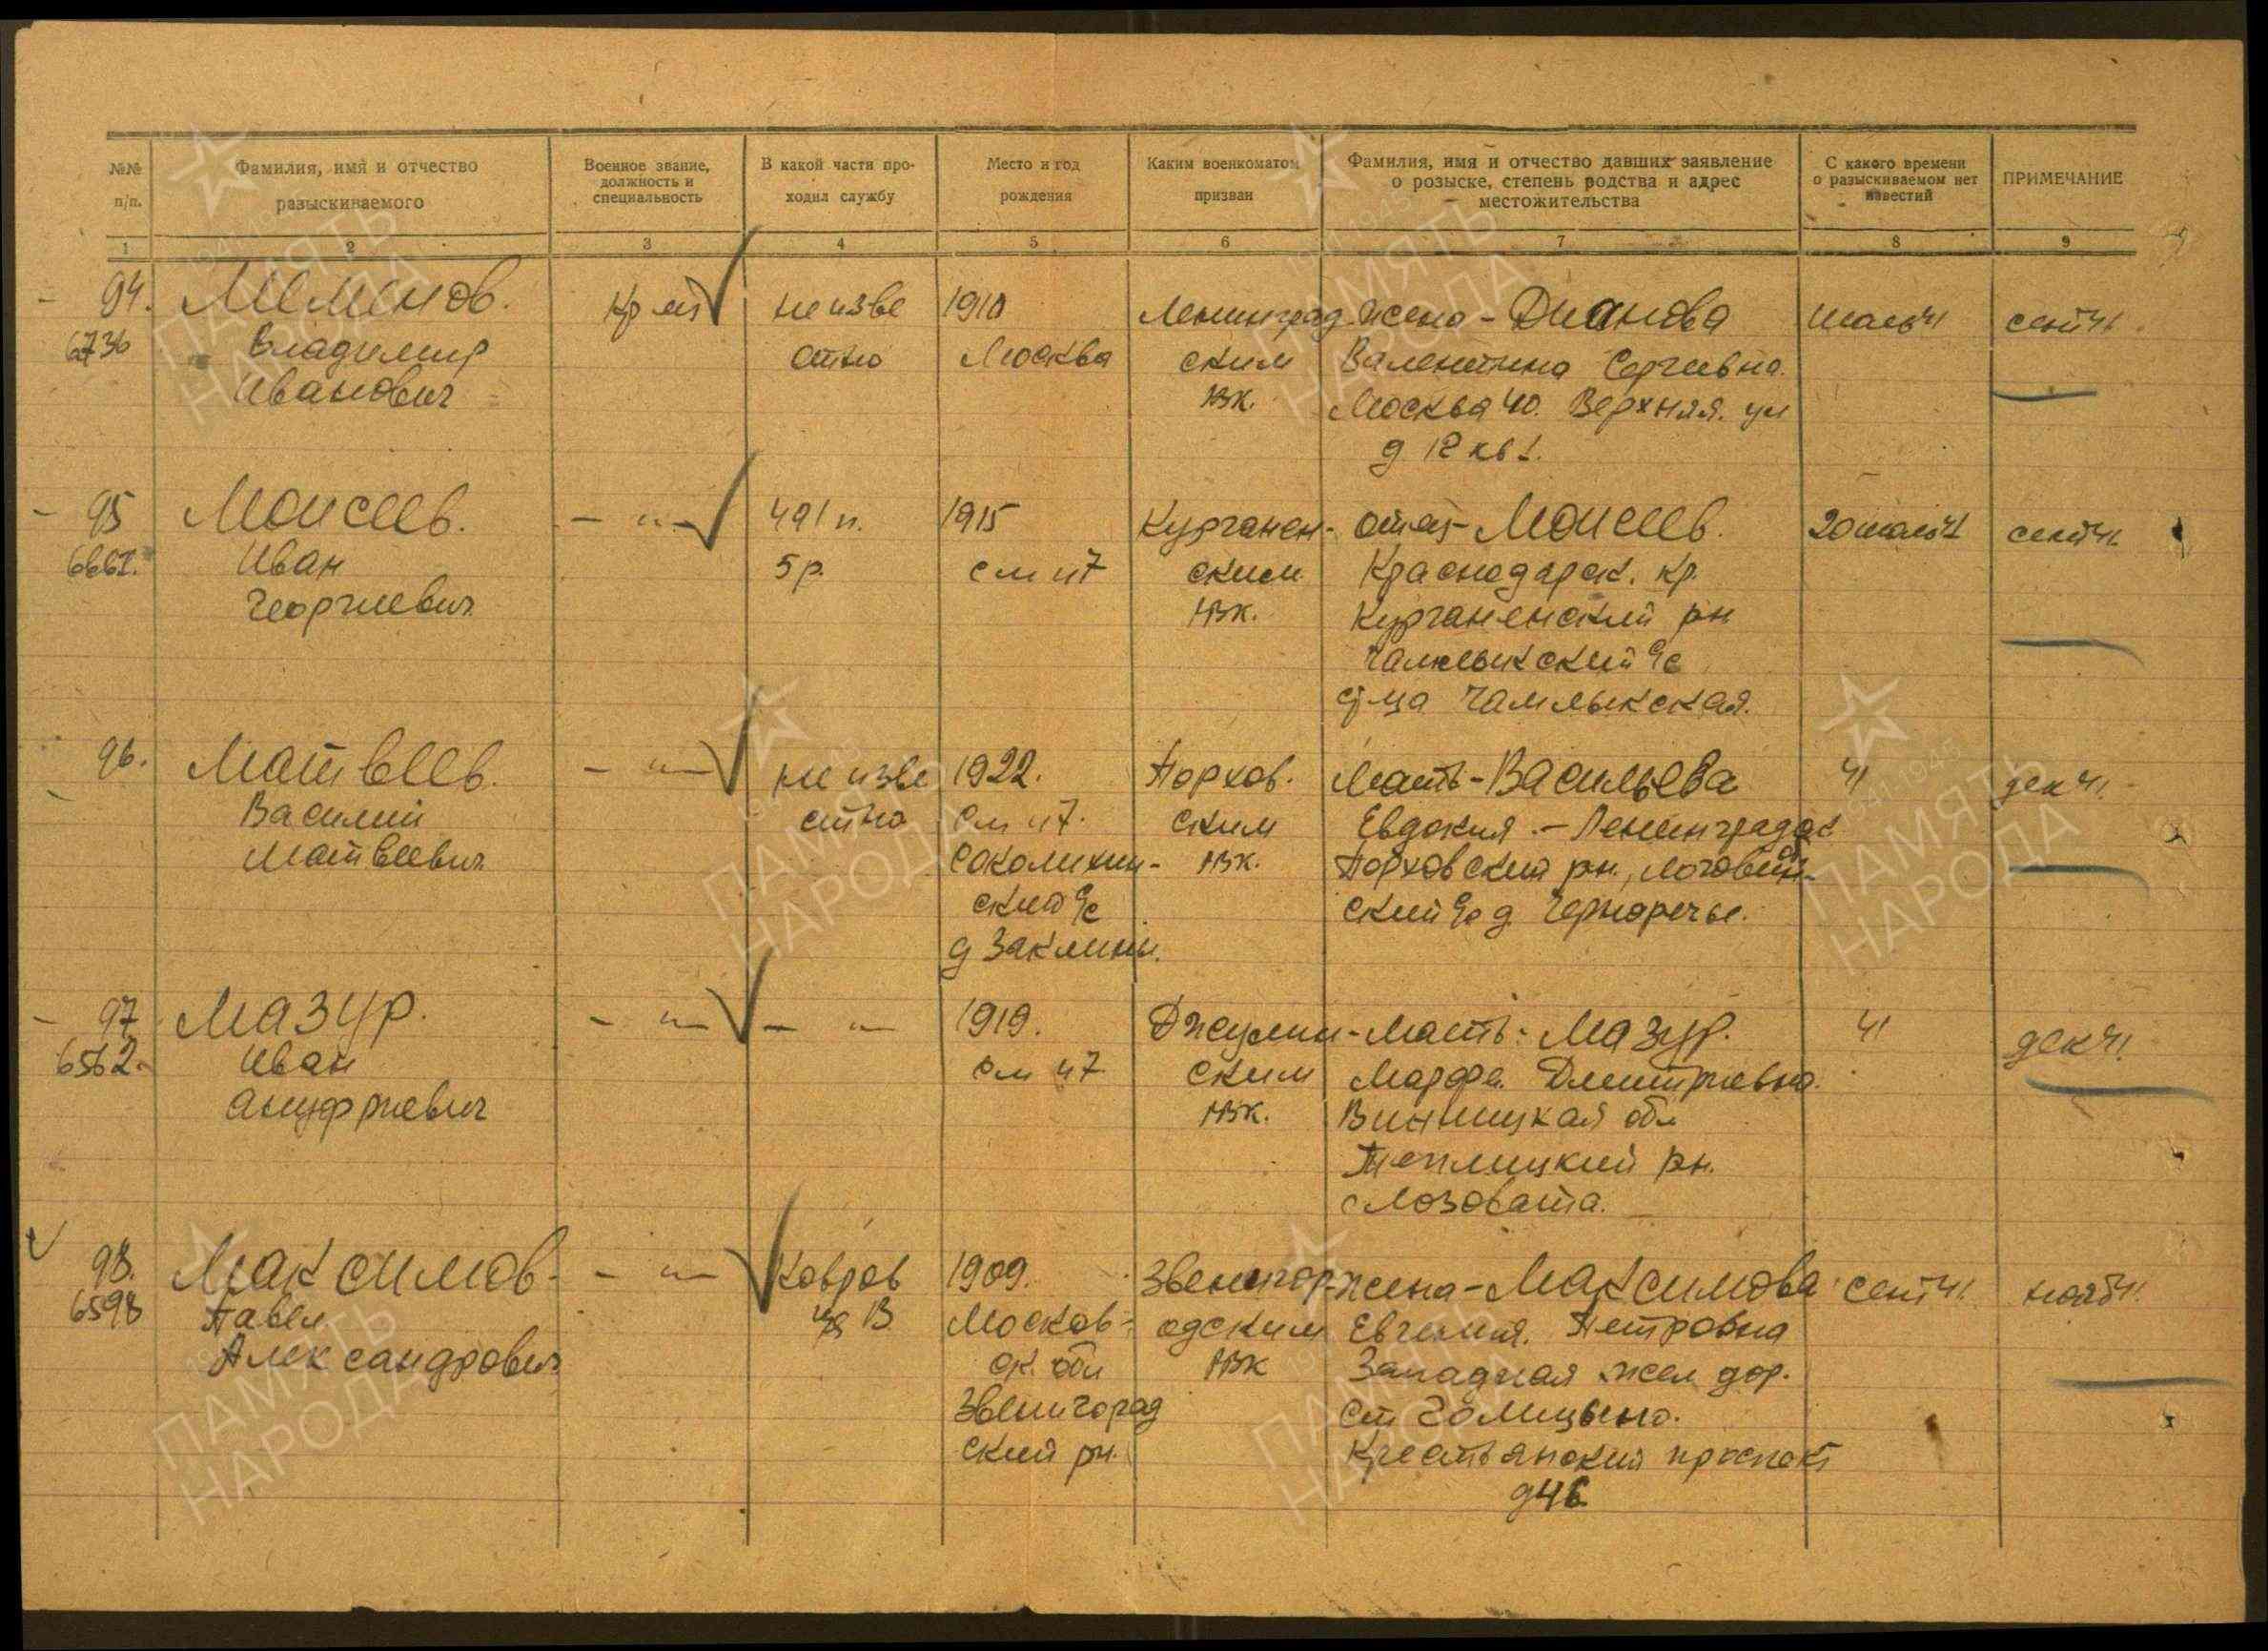 №№ п/п.
Фамилия, имя и отчество разыскиваемого
Военное звание, должность и специальность
В какой части проходил службу
Место и год рождения
Каким военкоматом призван
Фамилия, имя и отчество давших заявление о розыске, степень родства и адрес местожительства
С какого времени о разыскиваемом нет известий
ПРИМЕЧАНИЕ
1 2 3 4 5 6 7 8 9
94.
6736
Владимир
Иванович
неизве
стно
1910
Москва
Ленинград
ским
РВК.
жена - Дианова
Валентина Сергеевна.
Москва 40. Верхняя. ул
д 12 кв 1.
сент 41
95
Моисеев.
Иван
Георгиевич
- " -
491 п.
5 р.
1915
см н7
Курганен-
ским
РВК.
отец - Моисеев.
Краснодарск. кр.
Курганенский рн
Чамлыкский с/с
ст-ца Чамлыкская.
сент 41
96.
Матвеев.
Василий
Матвеевич
- " -
неизве
стно
1922.
см н7.
Соколихин-
ский с/с
д Заклинье.
Порхов.
ским
РВК.
Мать - Васильева
Евдокия. - Ленинградск
Порховский рн.,
ский с/с д Черноречье.
41
дек 41.
97
6562
Мазур.
Иван
Ануфриевич
- " -
- " -
1919.
см н7
Джулин-
ским
РВК.
мать - Мазур.
Марфа Дмитриевна.
Винницкая обл
Теплицкий рн.
с Лозовата.
41
дек 41.
98.
6598
Максимов
Павел
Александрович
- " -
Ковров
1909.
Москов-
ск. обл
Звенигород
ский рн.
Звенигор-
одским
РВК
жена - Максимова
Евгения. Петровна
Западная жел дор.
ст Голицыно.
Крестьянский проспект
д 46
сент 41
нояб 41.
ПАМЯТЬ
НАРОДА